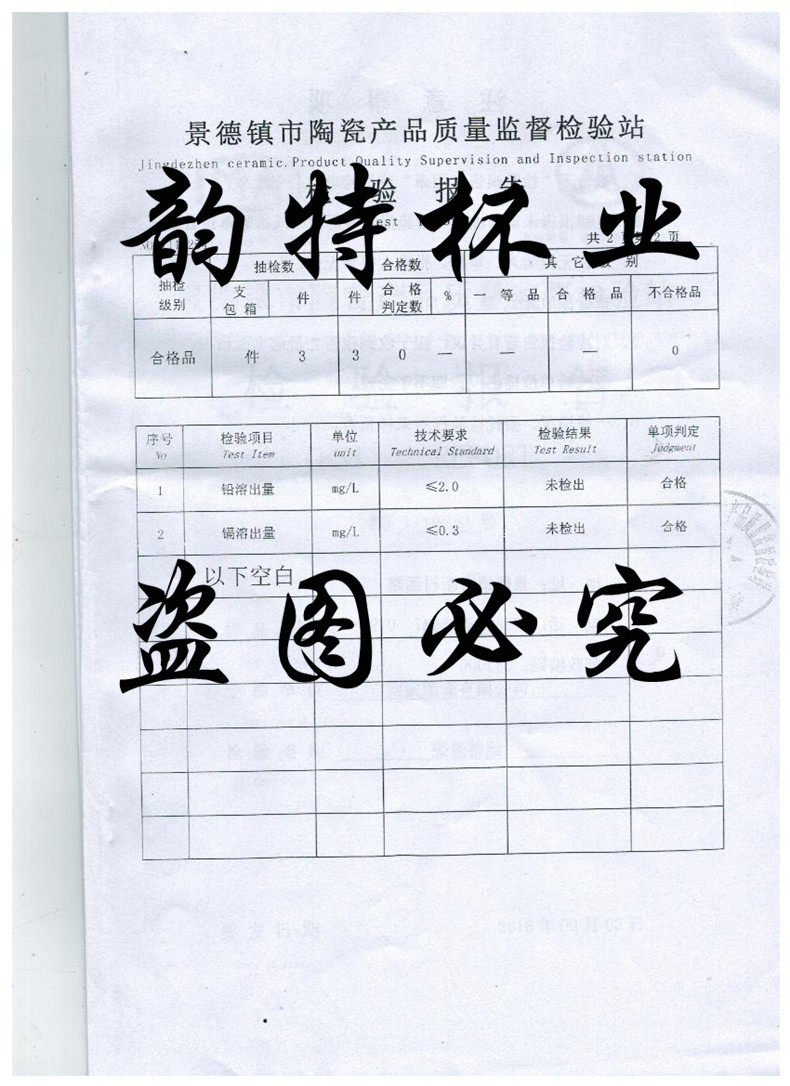 景德镇市陶瓷产品质量监督检验站
Jingdezhen ceramic.Product Quality Supervision and Inspection station
检 验 报 告
韵特杯业
共 2 页 第 2 页
抽检级别 抽检数 合格数 其 它 级 别
支包箱 件 件 合格判定数 % 一 等 品 合 格 品 不合格品
合格品 件 3 3 0 — — — 0
序号 检验项目 单位 技术要求 检验结果 单项判定
No Test Item unit Technical Standard Test Result Judgment
1 铅溶出量 mg/L ≤2.0 未检出 合格
2 镉溶出量 mg/L ≤0.3 未检出 合格
以下空白
盗图必究